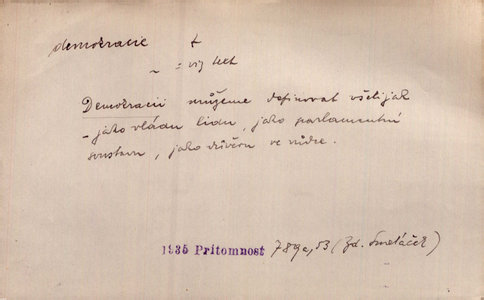 demokracie +
~ = viz text
Demokracii můžeme definovat všelijak
- jako vládu lidu, jako parlamentní
soustavu, jako důvěru ve vůdce.
1935 Přítomnost 789a, 53 (Zd. Smetáček)